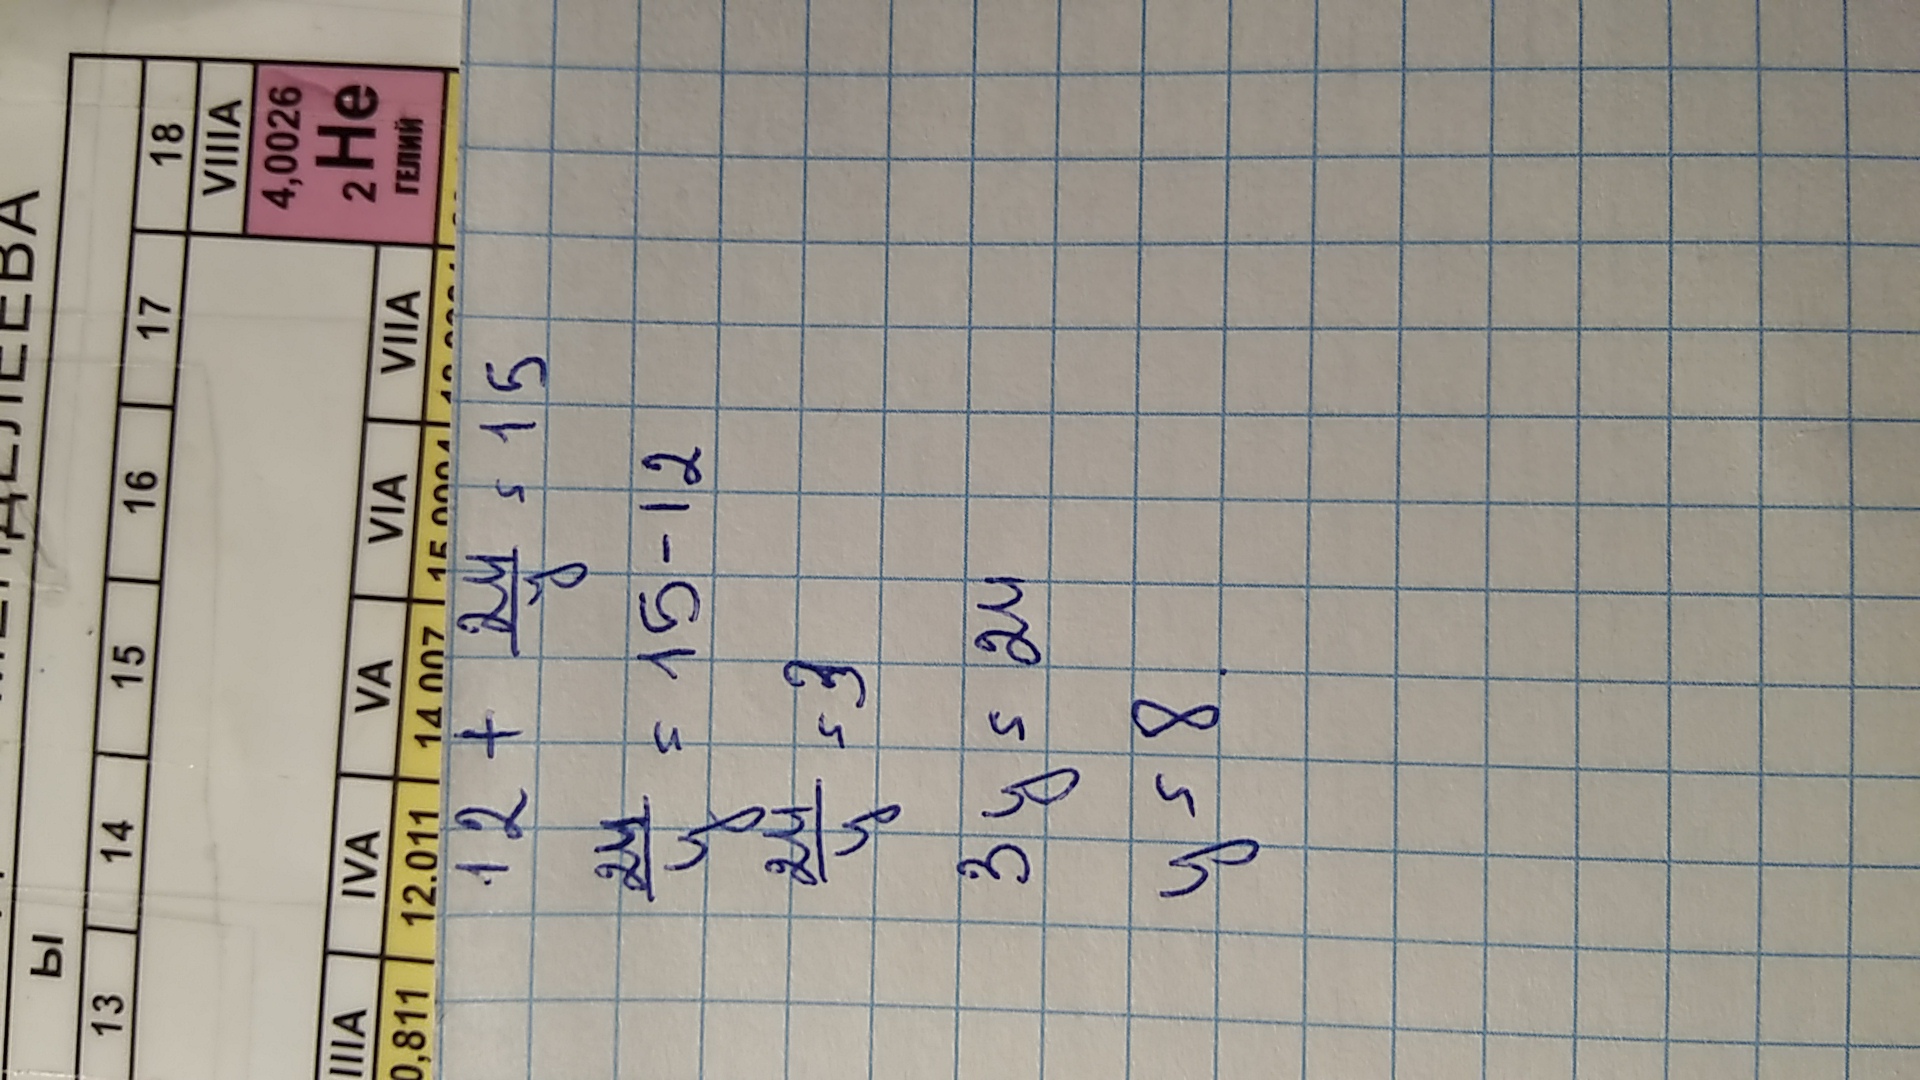 МЕНДЕЛЕЕВА
Ы
13 14 15 16 17 18
VIIIA
4,0026
2 He
ГЕЛИЙ
IIIA IVA VA VIA VIIA
0,811 12.011 14.007
12 + 24/y = 15
24/y = 15 - 12
24/y = 3
3y = 24
y = 8.